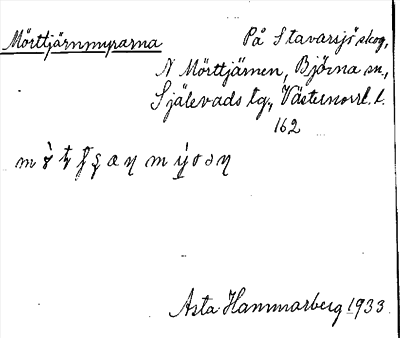 Mörttjärnmyrarna
På Stavarsjö skog,
N Mörttjärnen, Björna sn.,
Själevads tg, Västernorrl. l.
162
Asta Hammarberg 1933